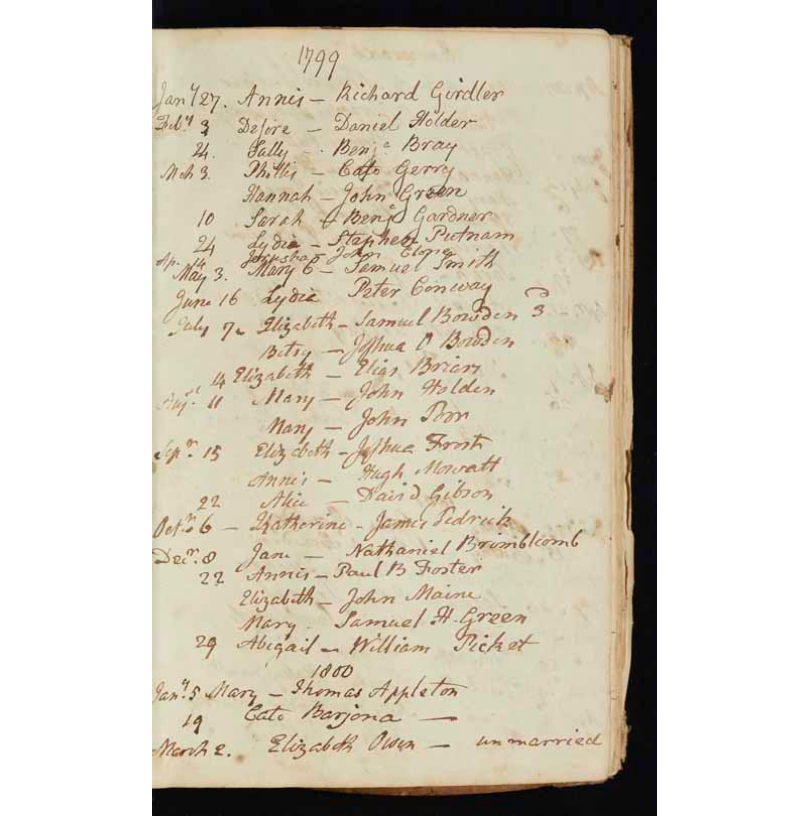 1799
Jany 27. Annis – Richard Girdler
Feby 3 Desire – Daniel Holder
24. Sally – Benja Bray
Mch 3. Phillis – Cato Gerry
Hannah – John Green
10 Sarah – Benja Gardner
24 Lydia – Stephen Putnam
Ap. 14 Jerusha – John
May 3. Mary C – Samuel Smith
June 16 Lydia Peter Conway
July 7. Elizabeth – Samuel Bowden 3
Betsy – Joshua O Bowden
14 Elizabeth – Elias Briars
Augt 11 Mary – John Holden
Mary – John Porr
Sepr. 15 Elizabeth – Joshua Frost
Annis – Hugh Mowatt
22 Alice – David Gibson
Octr. 6 – Katherine – James Pedrick
Decr. 8 Jane – Nathaniel Brimblcomb
22 Annis – Paul B Foster
Elizabeth – John Maine
Mary. Samuel H. Green
29 Abigail – William Picket
1800
Jany. 5 Mary – Thomas Appleton
19 Cato Barjona —
March 2. Elizabeth Owen – unmarried